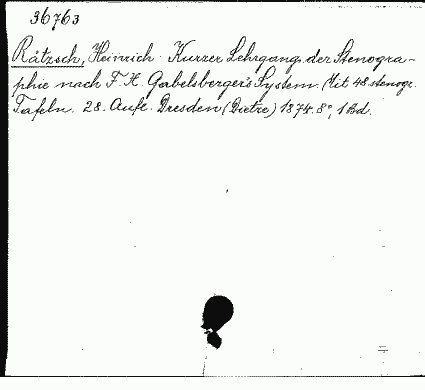 36763
Rätzsch, Heinrich. Kurzer Lehrgang der Stenogra-
phie nach F. X. Gabelsberger's System. Mit 48 stenogr.
Tafeln. 28. Aufl. Dresden (Dietze) 1874. 8°, 1 Bd.